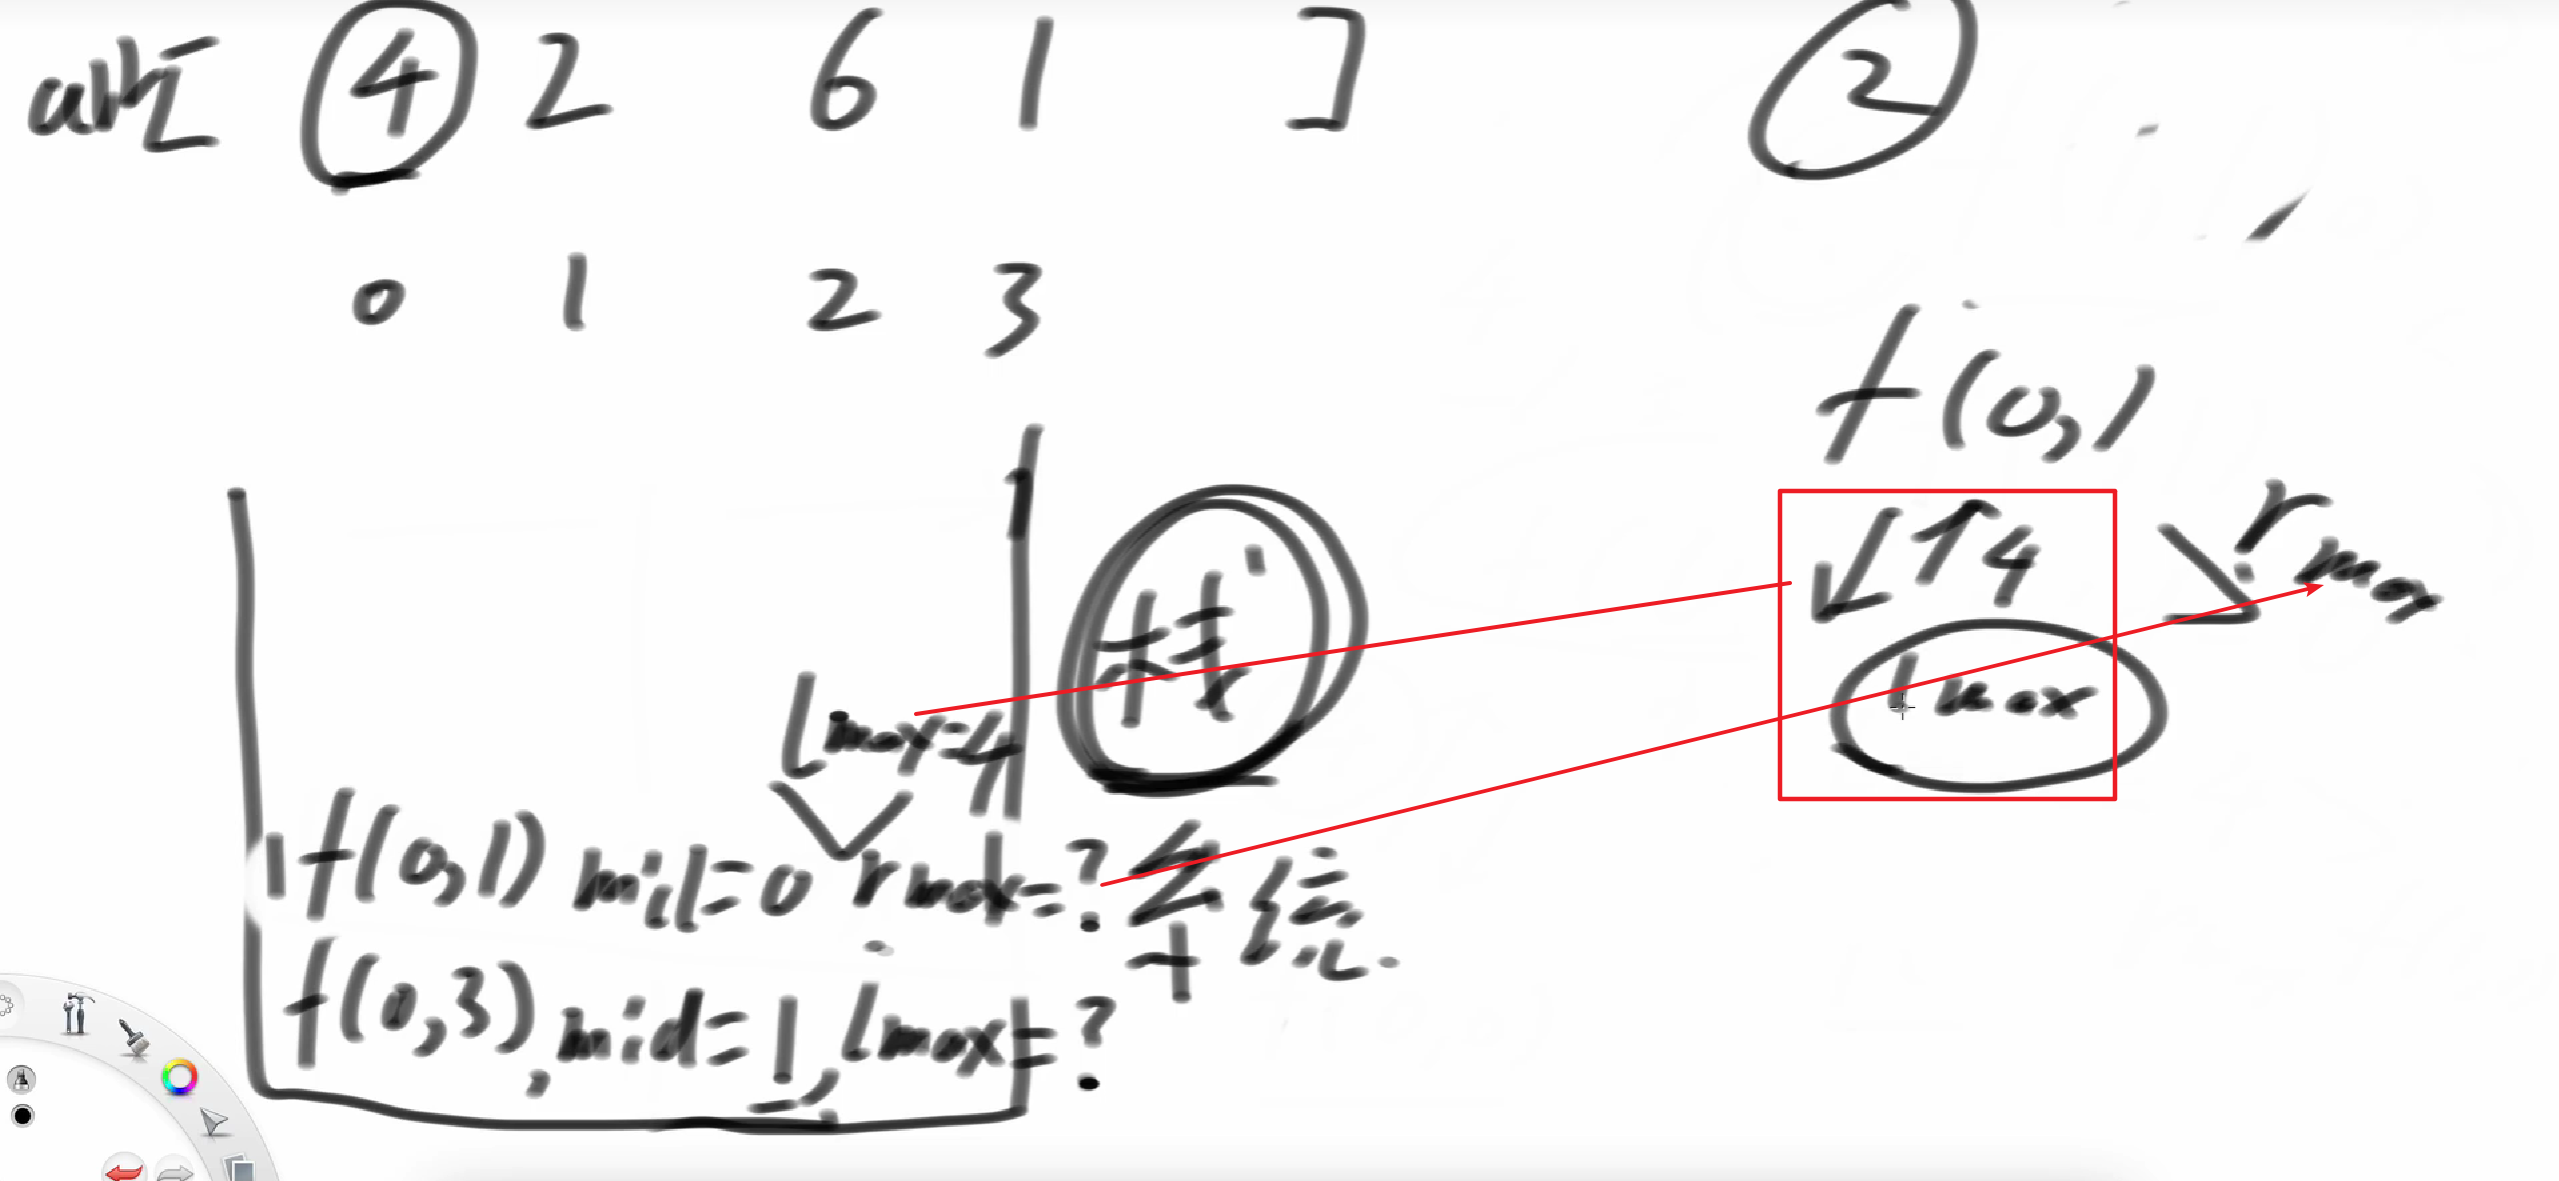 arr[ 4 2 6 1 ] 2
0 1 2 3
f(0,1)
4 rmax
栈
lmax=4 lmax
f(0,1) mid=0 rmax=? 系统
f(0,3), mid=1, lmax=?